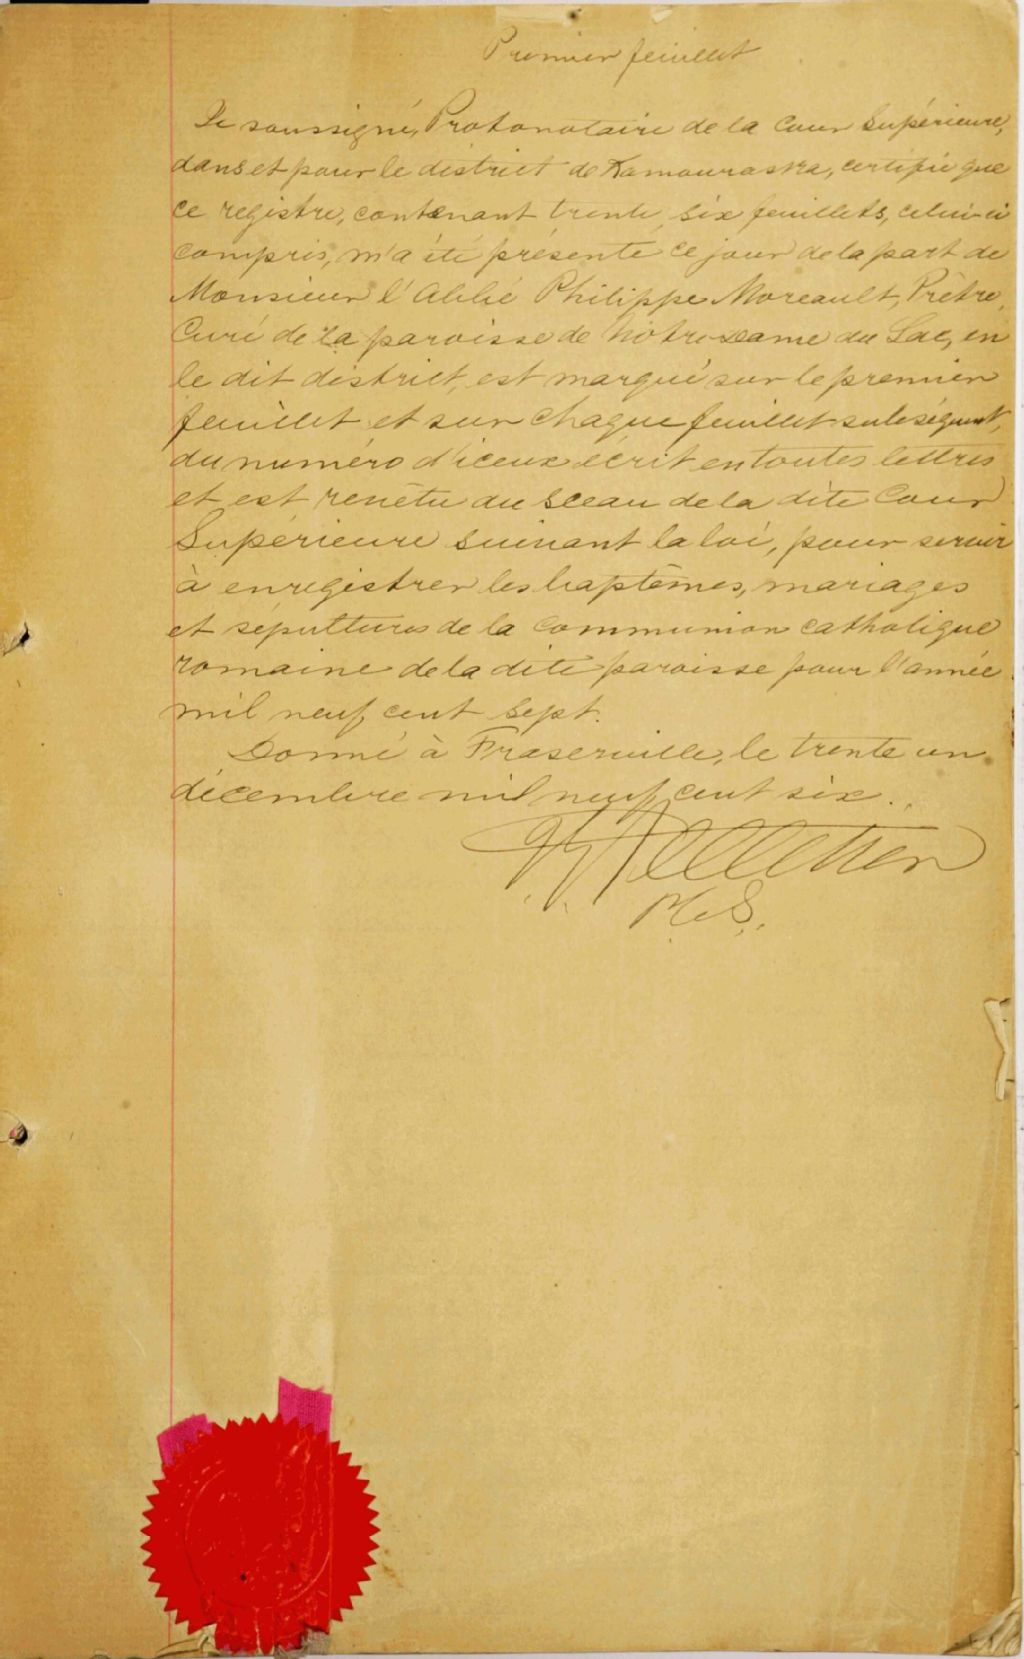 Premier feuillet
Je soussigné, Protonotaire de la Cour Supérieure,
dans et pour le district de Kamouraska, certifie que
ce registre, contenant trente six feuillets, celui-ci
compris, m'a été présenté ce jour de la part de
Monsieur l'Abbé Philippe Moreault, Prêtre,
Curé de la paroisse de Notre-Dame du Lac, en
le dit district, est marqué sur le premier
feuillet et sur chaque feuillet subséquent,
du numéro d'iceux écrit en toutes lettres
et est revêtu du sceau de la dite Cour
Supérieure suivant la loi, pour servir
à enregistrer les baptêmes, mariages
et sépultures de la Communion catholique
romaine de la dite paroisse pour l'année
mil neuf cent sept.
Donné à Fraserville, le trente un
décembre mil neuf cent six.
Pelletier
P.C.S.